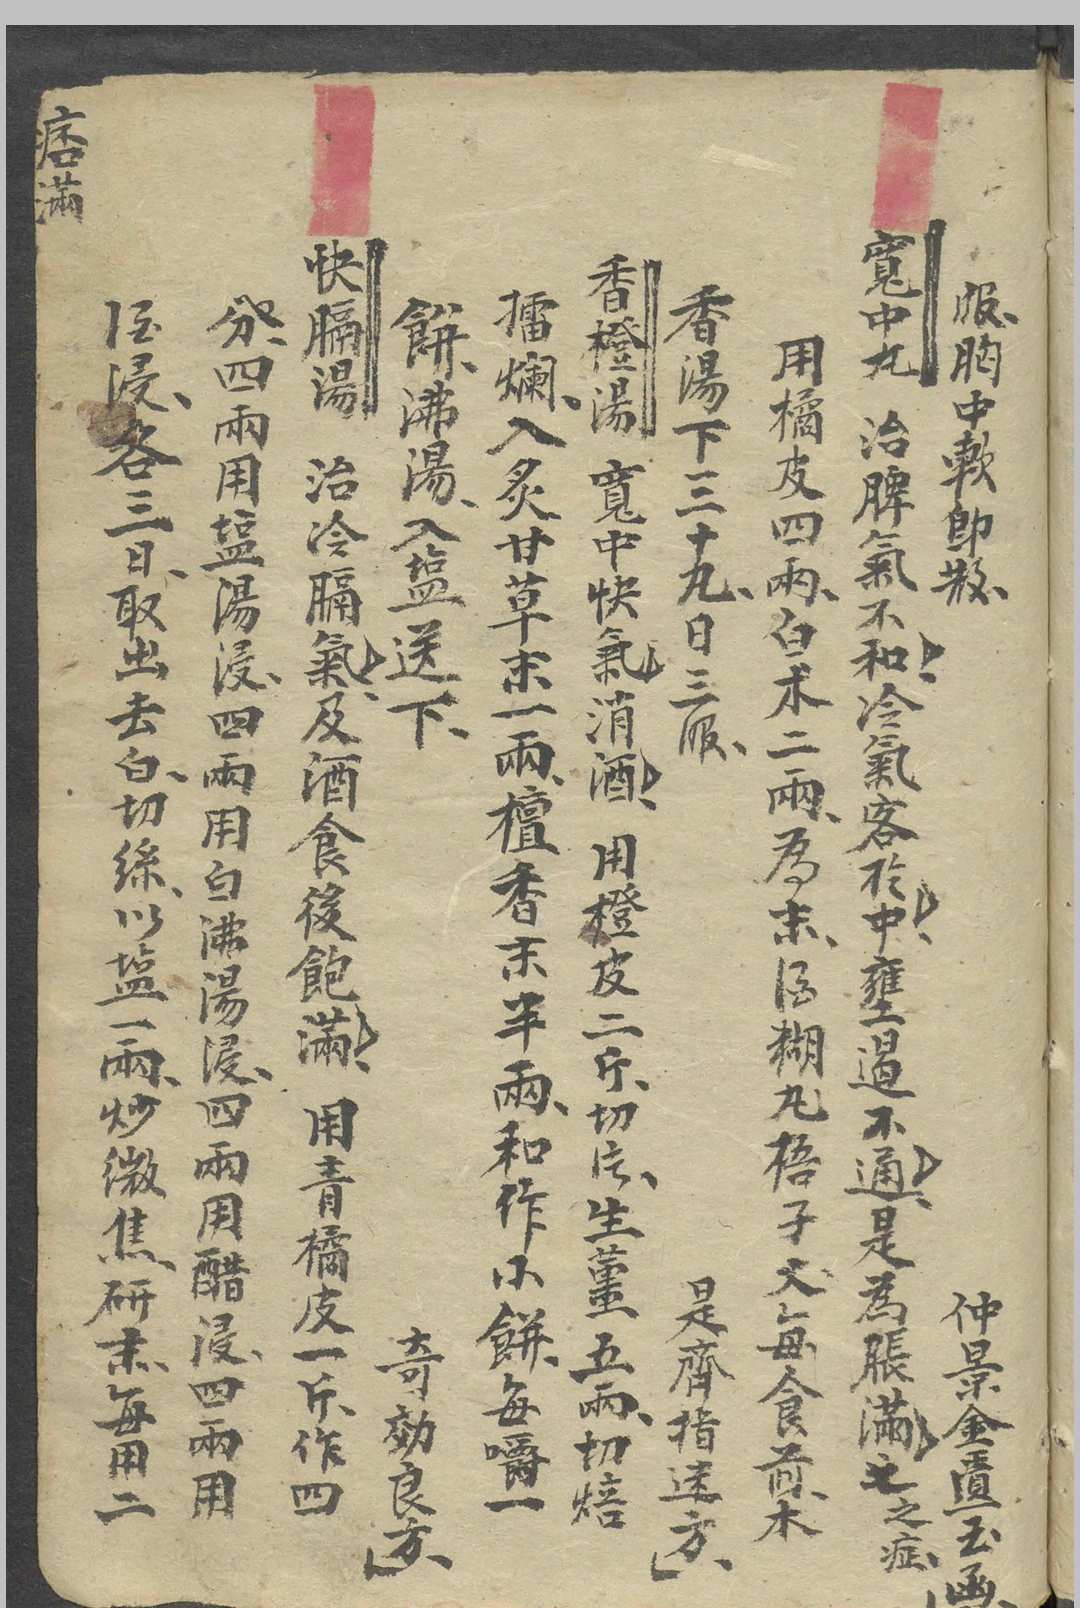 服、胸中軟即散、　仲景金匱玉函、
寬中丸　治脾氣不和、冷氣客於中、壅遏不通、是為脹滿之症、
用橘皮四兩、白朮二兩、為末、酒糊丸梧子大、每食前、木
香湯下三十丸、日三服、　是齊指迷方、
香橙湯　寬中快氣消酒、　用橙皮二斤、切片、生薑五兩、切焙
擂爛、入炙甘草末一兩、檀香末半兩、和作小餅、每嚼一
餅、沸湯、入塩送下、　奇効良方、
快膈湯　治冷膈氣、及酒食後飽滿、　用青橘皮一斤、作四
分、四兩用塩湯浸、四兩用白沸湯浸、四兩用醋浸、四兩用
酒浸、各三日、取出去白、切絲、以塩一兩、炒微焦、研末、每用二
痞滿